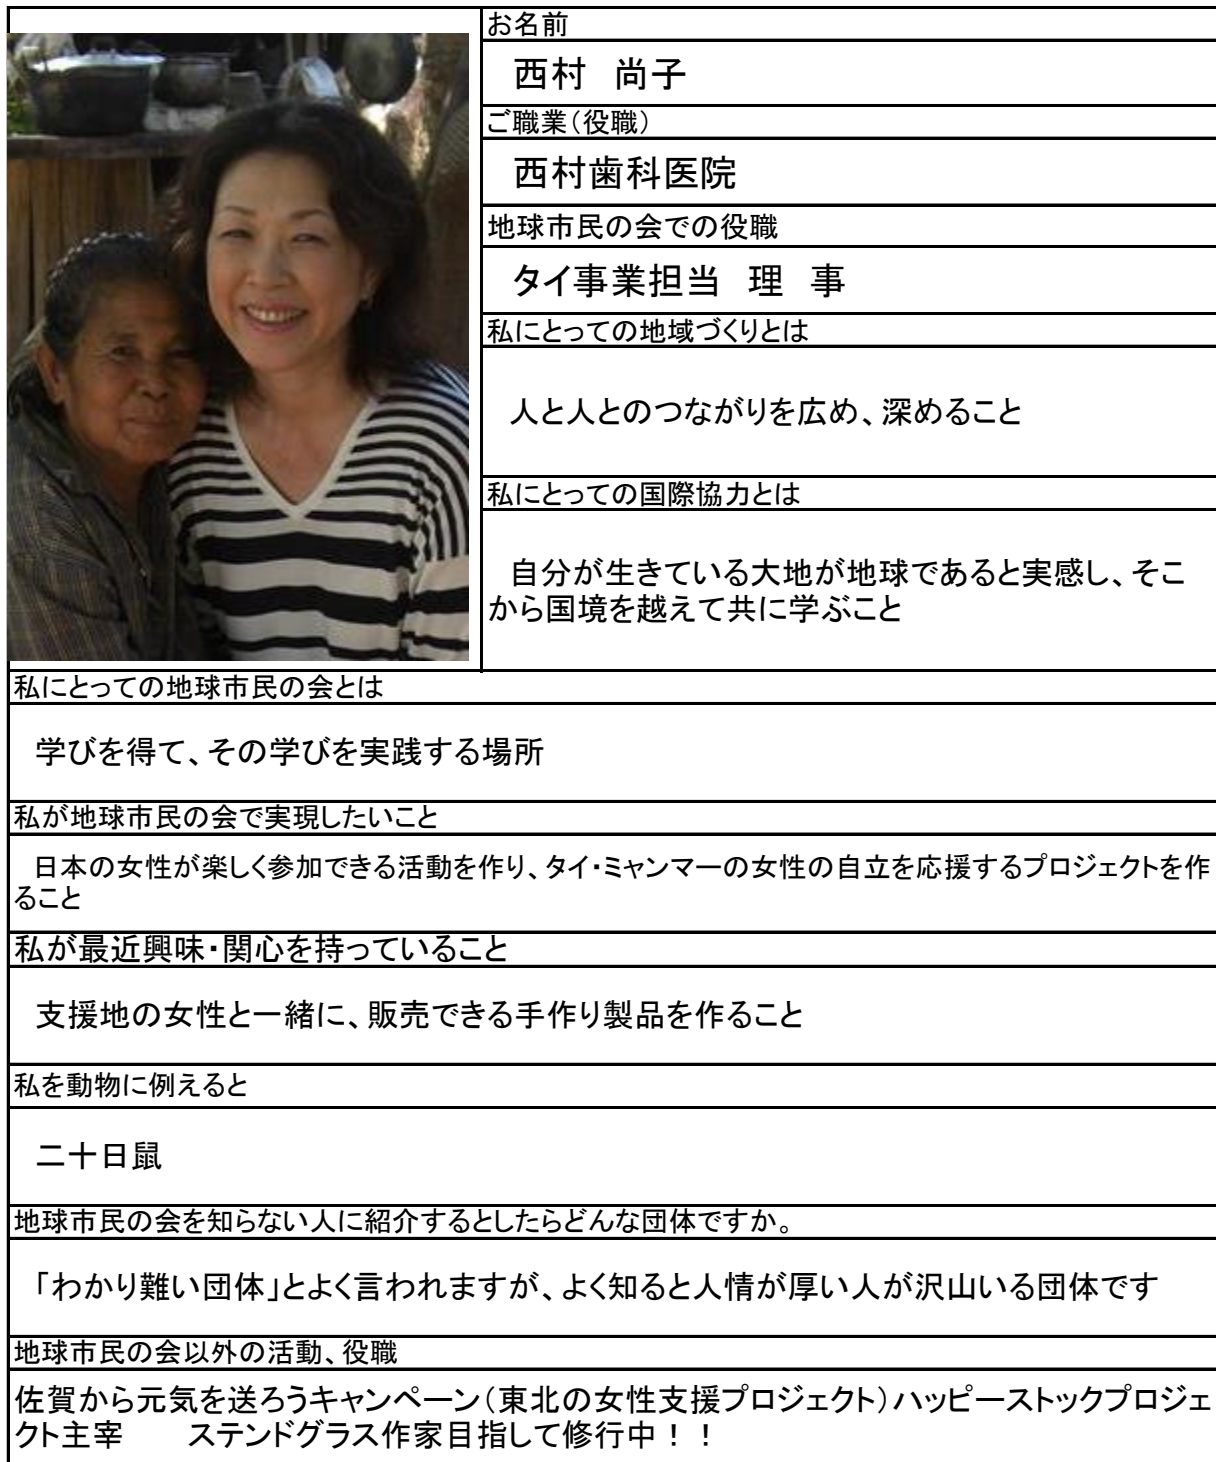 お名前
西村　尚子
ご職業（役職）
西村歯科医院
地球市民の会での役職
タイ事業担当　理　事
私にとっての地域づくりとは
人と人とのつながりを広め、深めること
私にとっての国際協力とは
自分が生きている大地が地球であると実感し、そこ
から国境を越えて共に学ぶこと
私にとっての地球市民の会とは
学びを得て、その学びを実践する場所
私が地球市民の会で実現したいこと
日本の女性が楽しく参加できる活動を作り、タイ・ミャンマーの女性の自立を応援するプロジェクトを作
ること
私が最近興味・関心を持っていること
支援地の女性と一緒に、販売できる手作り製品を作ること
私を動物に例えると
二十日鼠
地球市民の会を知らない人に紹介するとしたらどんな団体ですか。
「わかり難い団体」とよく言われますが、よく知ると人情が厚い人が沢山いる団体です
地球市民の会以外の活動、役職
佐賀から元気を送ろうキャンペーン（東北の女性支援プロジェクト）ハッピーストックプロジェ
クト主宰　　ステンドグラス作家目指して修行中！！